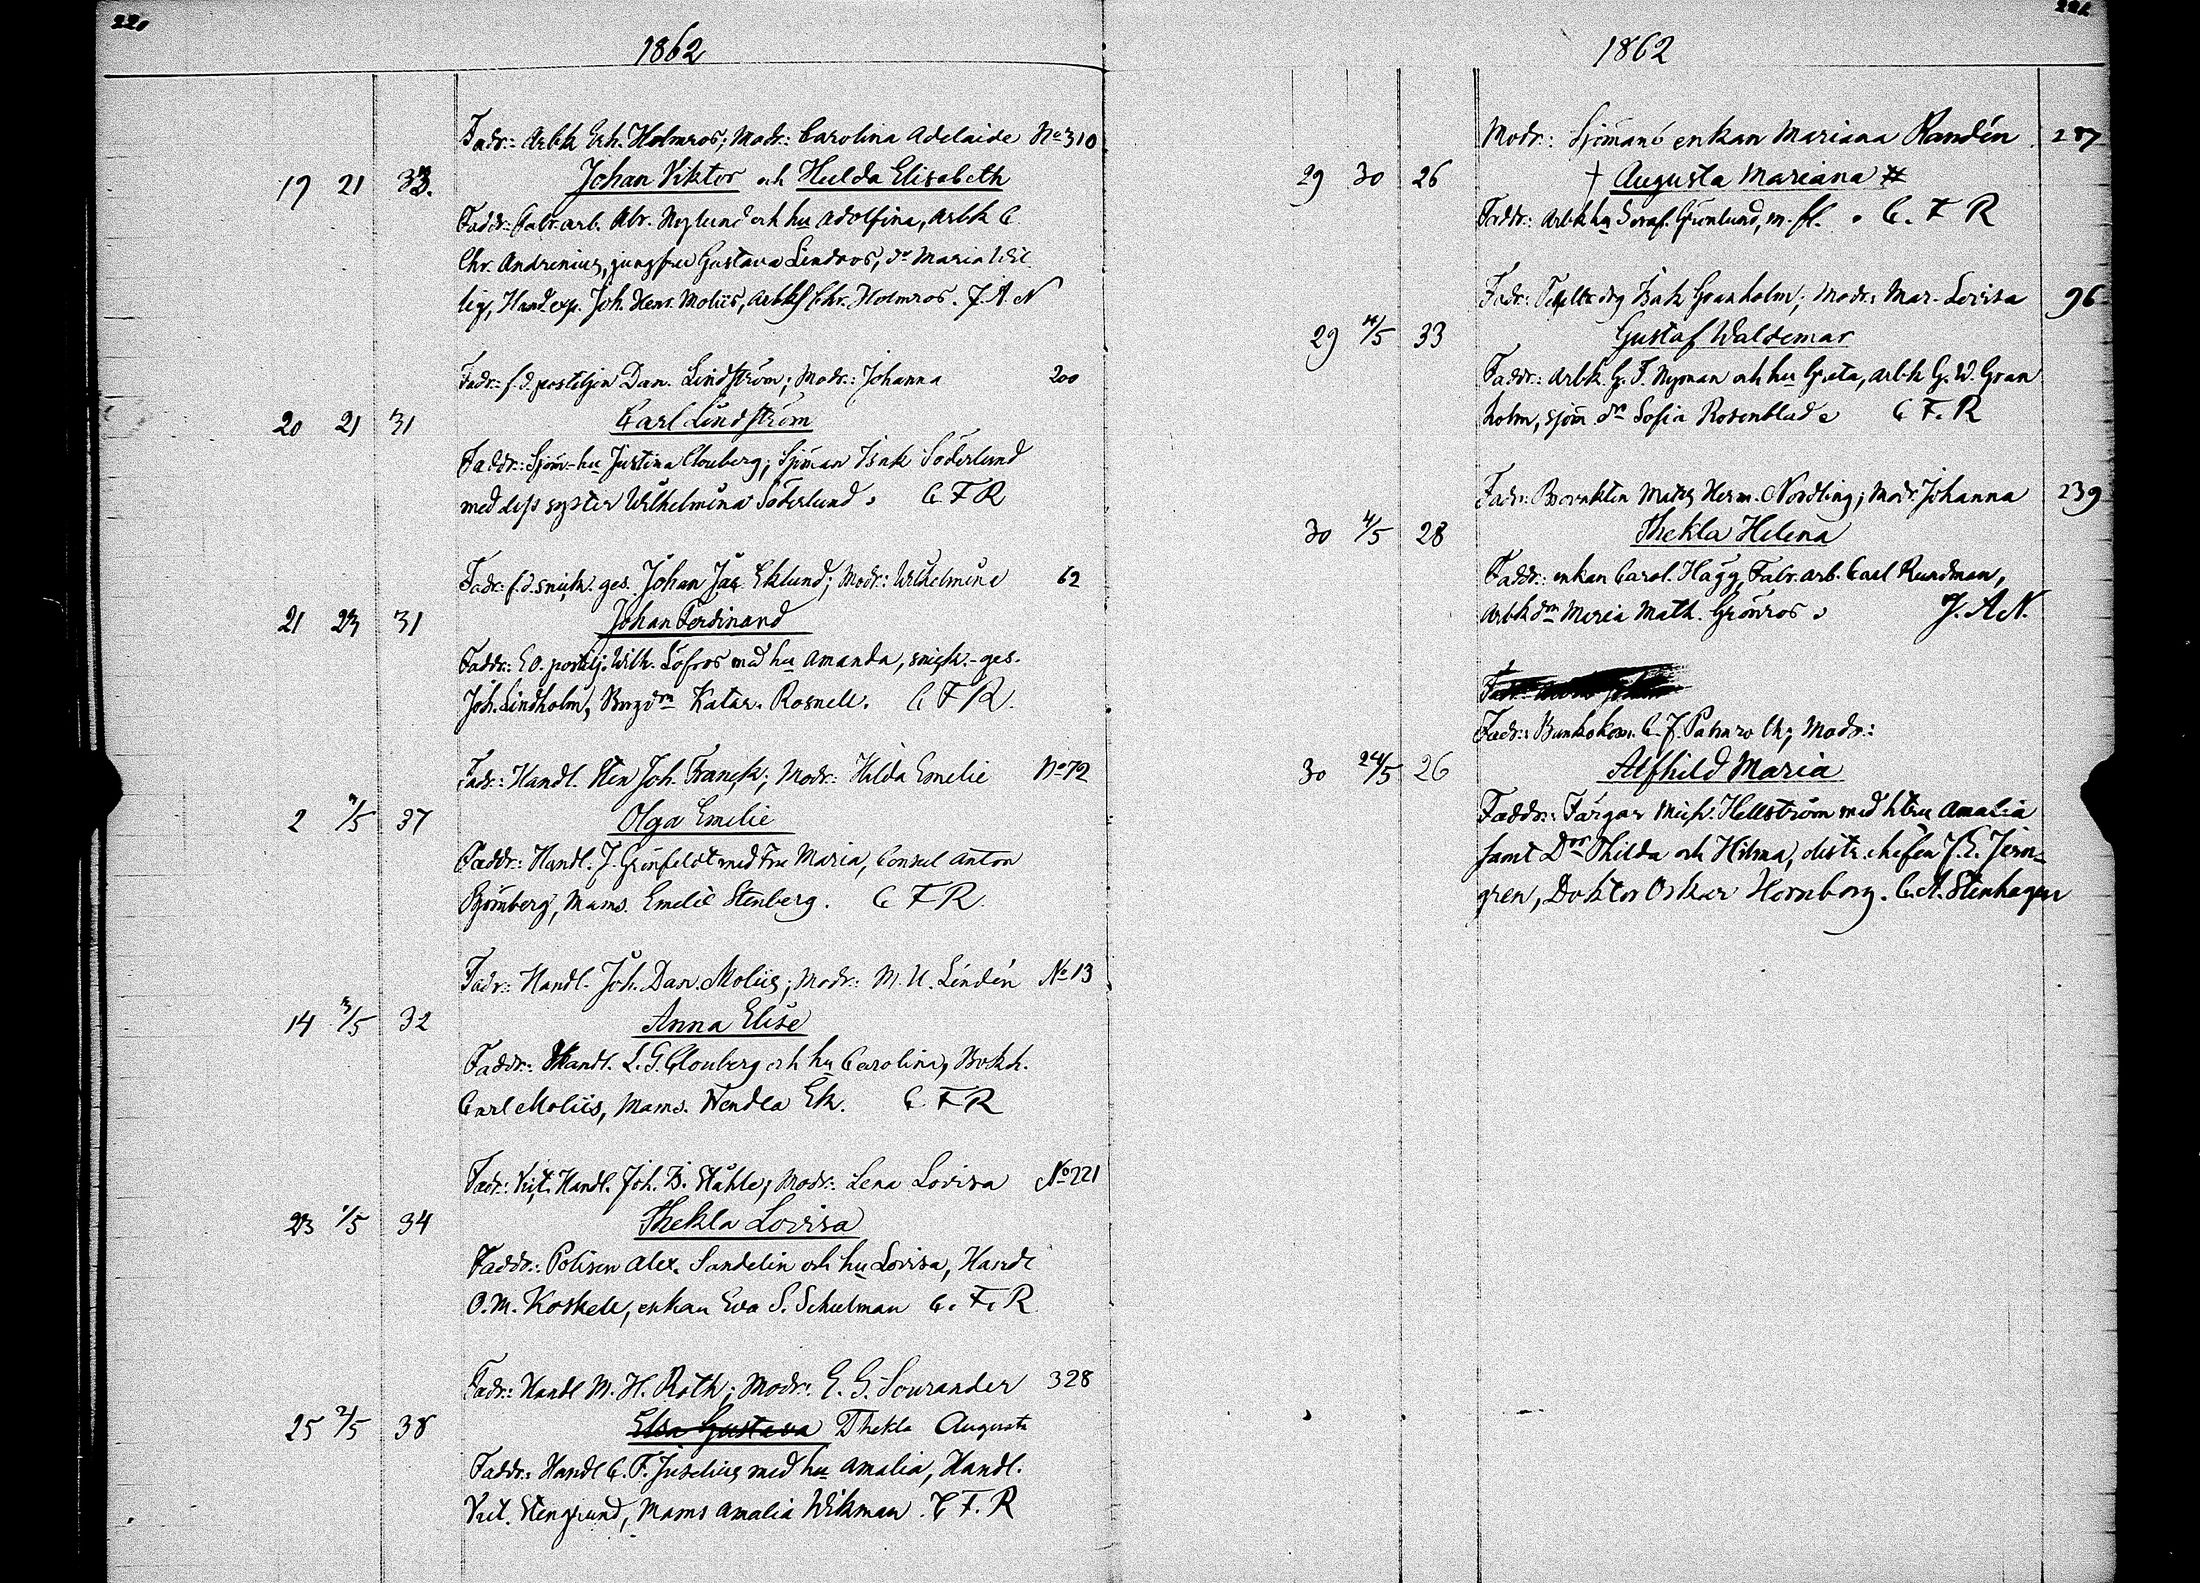 220
1862
Fadr: Arbk Erh. Holmros; Modr: Carolina Adelaide No 310
19 21 33.
Johan Viktor och Hulda Elisabeth
Faddr: Fabr. arb. Abr. Nyglund och hu Adolfina, Arbk C
Chr. Andrenius, jungfru Gustava Lindros, do Maria Wil
lig, Hand. exp. Joh. Henr. Moliis, Arbk Chr. Holmros. J. A. N
Fadr: f. d. postiljon Dan. Lindström; Modr: Johanna 200
20 21 31
Carl Lindström
Faddr: Sjöm-hu Justina Clouberg; Sjöman Isak Söderlund
med dess syster Wilhelmina Söderlund. C F R
Fadr: f. d. snick. ges. Johan Jac. Eklund; Modr: Wilhelmina 62
21 23 31
Johan Ferdinand
Faddr: E. O. postilj. Wilh. Löfros med hu Amanda, snick.-ges.
Joh. Lindholm, Katar. Rosnell. C F R.
Fadr: Handl. Sten Joh. Franck; Modr: Hilda Emelie No 72
2 3/5 37
Olga Emilie
Faddr: Handl. J. Grönfeldt med Fru Maria, Consul Anton
Björnberg, Mams. Emelie Stenberg. C F R.
Fadr: Handl. Joh. Dan. Moliis; Modr: M. U. Lindén No 13
14 3/5 32
Anna Elise
Faddr: Handl. L. G. Clouberg och hu Carolina, Bokh.
Carl Moliis, Mams. Wendla Ek. C F R
Fadr: Vict. Handl. Joh. B. Ståhle; Modr: Lena Lovisa No 221
23 1/5 34
Thekla Lovisa
Faddr: Polisen Alex. Sandelin och hu Lovisa, Handl
O. M. Koskell, enkan Eva S. Schulman C. F. R
Fadr: Handl M. H. Roth; Modr: E. G. Sourander 328
25 2/5 38
Elsa Gustava Thekla Augusta
Faddr: Handl C. F. Juselius med hu Amalia, Handl.
Vict. Stengrund, Mams Amalia Wikman. C F. R
221
1862
Modr: Sjömans enkan Mariana Randén 287
29 30 26
† Augusta Mariana #
Faddr: Arbk hu Seraf. Grönlund, m. fl. C. F R
Fadr: Isak Granholm; Modr: Mar. Lovisa 96
29 4/5 33
Gustaf Waldemar
Faddr: Arbk. G. F. Nyman och hu Greta, arbk G. W. Gran
holm, sjöm dr Sofia Rosenblad. C F. R
Fadr: Mats Herm. Nordling; Modr Johanna 239
30 4/5 28
Thekla Helena
Faddr: enkan Carol. Hägg, Fabr. arb. Carl Rundman,
Arbk drn Maria Math. Grönros. J. A N.
Fadr: Bankokom. C. J. Palmroth; Modr:
30 24/5 26
Alfhild Maria
Faddr: Färgar Mich. Hellström med htru Amalia
samt Drr Thilda och Hilma, distr. chefen J. E. Jern-
gren, Doktor Oskar Hornborg. C. A. Stenhagen